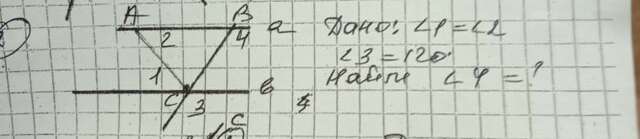 A B a
2 4
1
C 3 в
с
Дано: ∠1=∠2
∠3=120
Найти ∠4=?